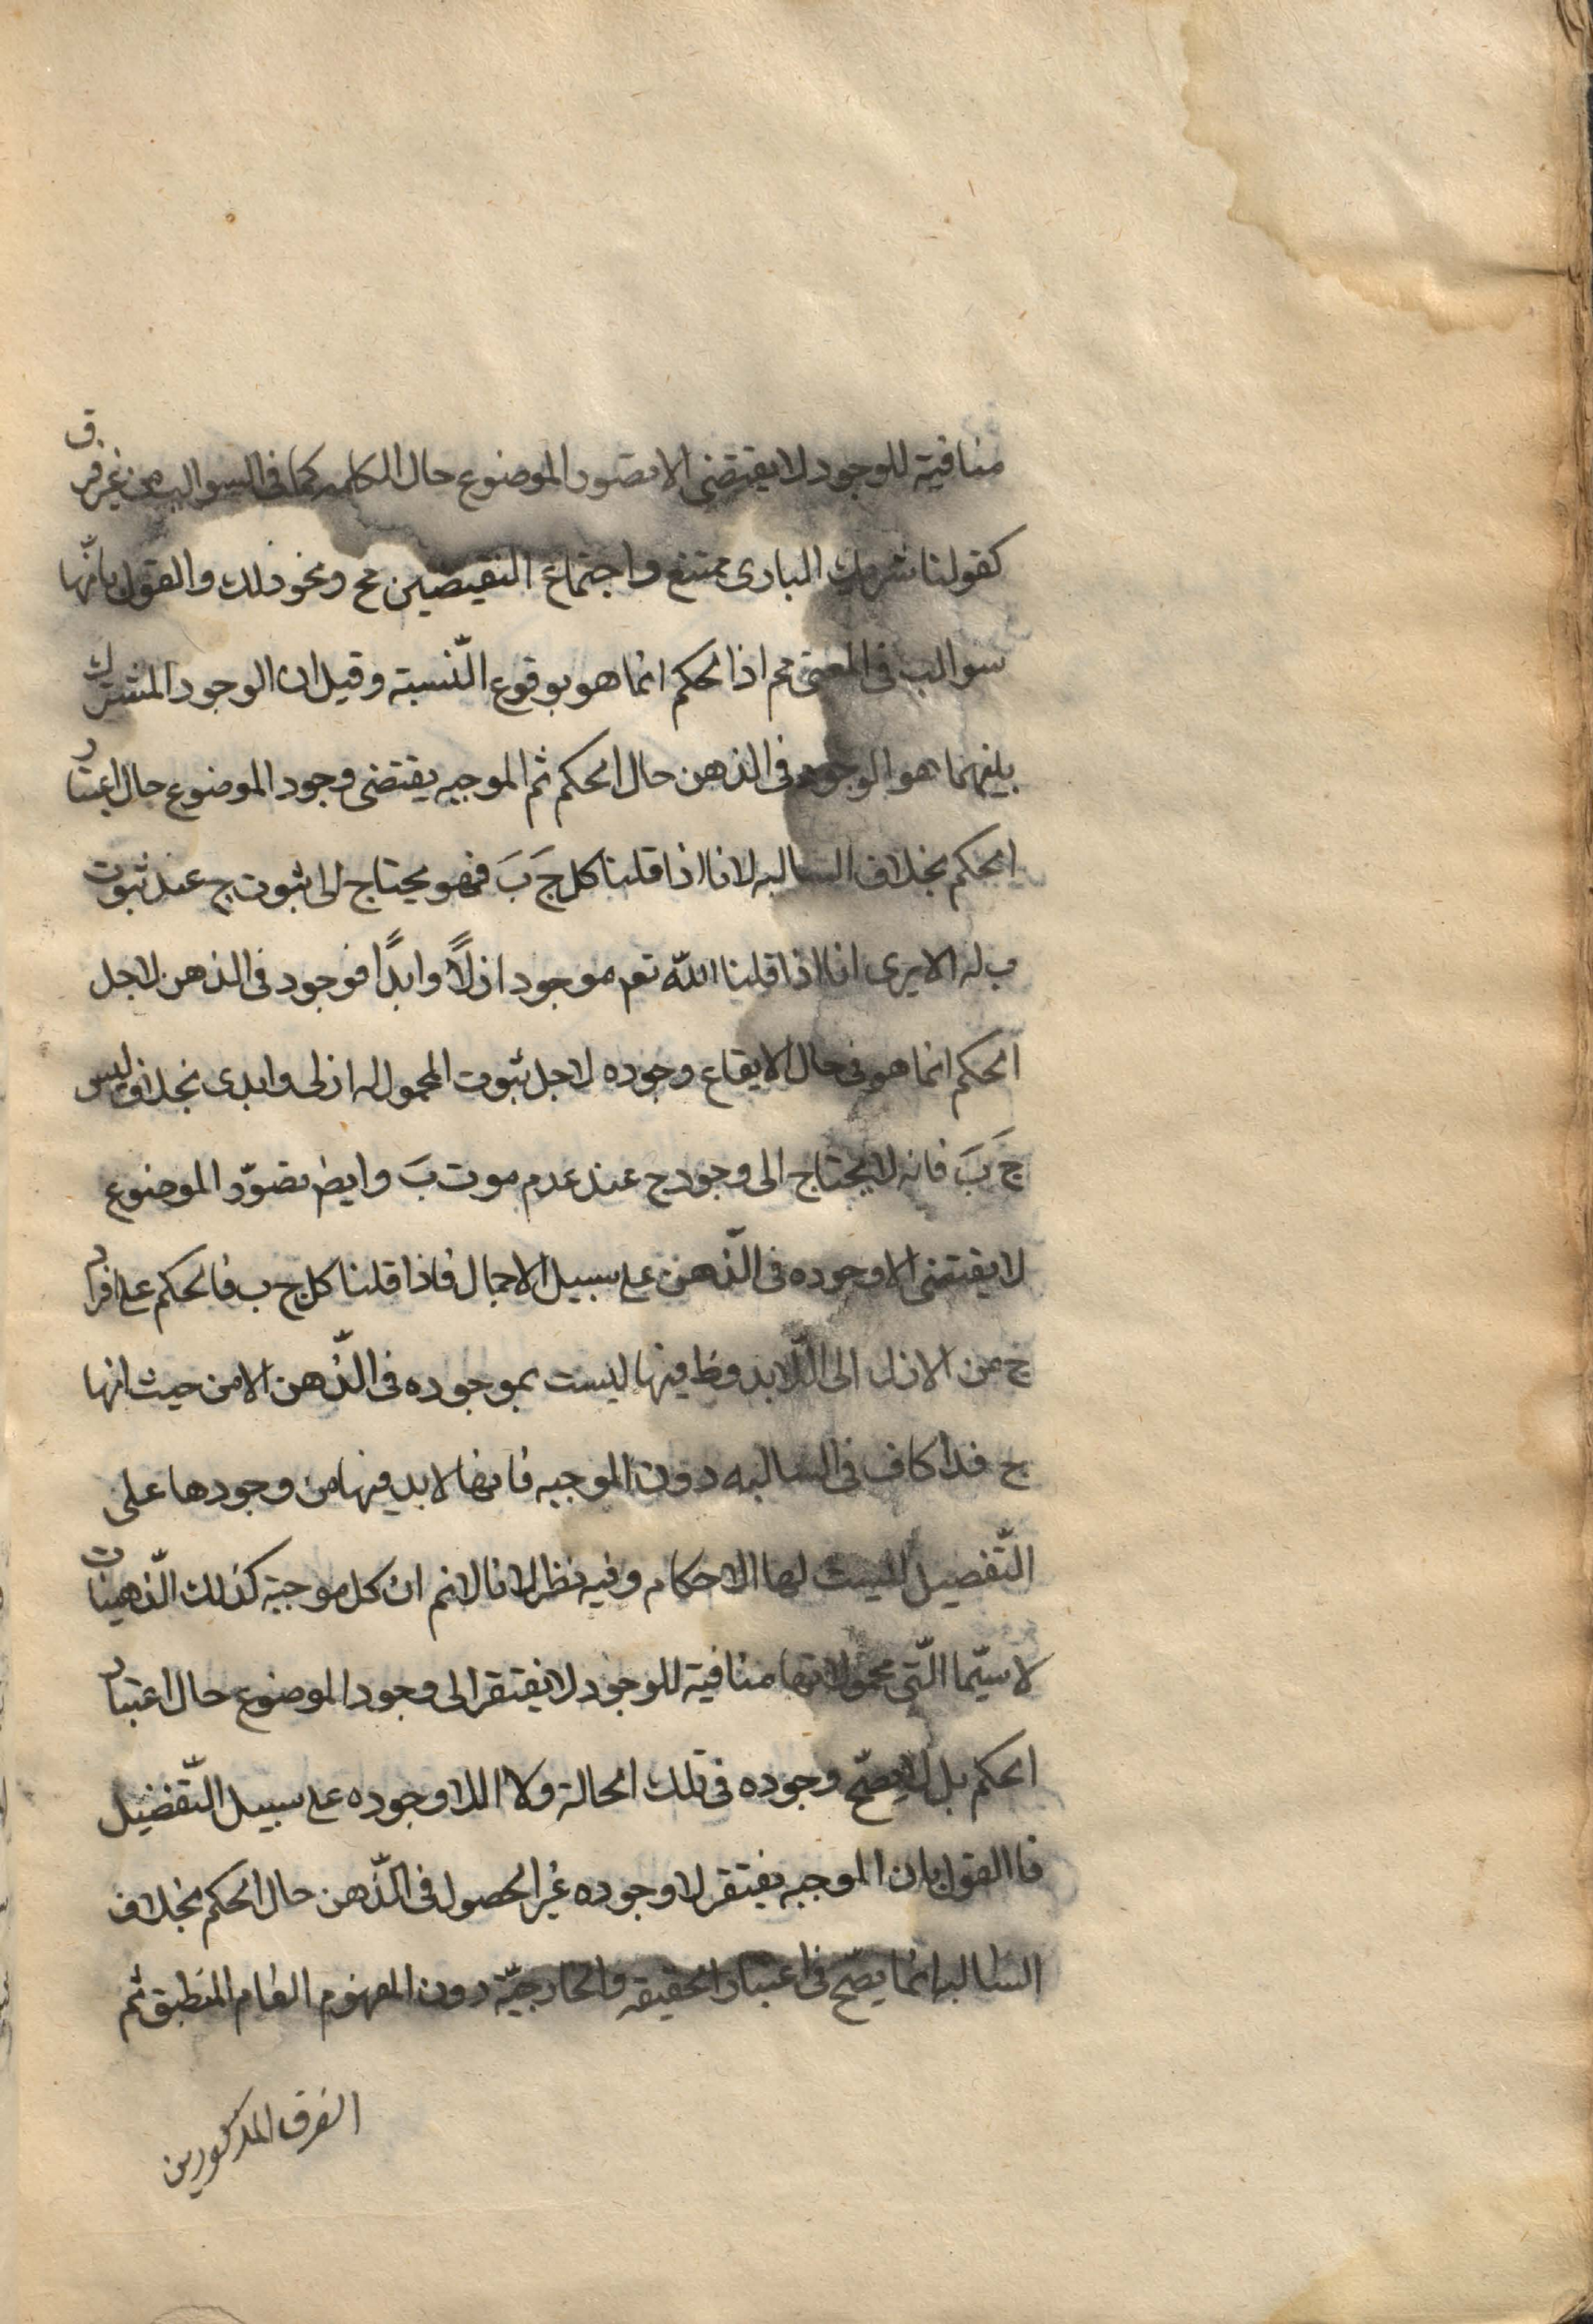 منافية للوجود لا يقتضى الا تصور الموضوع حال الحكم كما فى السوالب من غير فرق
كقولنا شريك البارى ممتنع و اجتماع النقيضين مح ونحو ذلك والقول بانّها
سوالب فى المعنى مم اذ الحكم انما هو بوقوع النّسبة وقيل ان الوجود المشترك
بينهما هو الوجود فى الذهن حال الحكم ثم الموجبه يقتضى وجود الموضوع حال اعتبار
الحكم بخلاف السالبه لانا اذا قلنا كل جَ بَ فهو يحتاج الى ثبوت ج عند ثبوت
ب له الا يرى انا اذا قلنا اللّه تعم موجود ازلًا وابدًا فوجود فى الذهن لاجل
الحكم انما هو فى حال الايقاع وجوده لاجل ثبوت المحمول له ازلى وابدى بخلاف ليس
جَ بَ فانه لا يحتاج الى وجود ج عند عدم موت بَ وايضا تصوّر الموضوع
لا يقتضى الا وجوده فى الذّهن على سبيل الاجمال فاذا قلنا كل ج ب فالحكم على افراد
ج من الازل الى اللابد وظ فيها ليست بموجوده فى الذّهن الا من حيث انها
ج فذا كاف فى السالبه دون الموجبه فانها لابد فيها من وجودها على
التّفصيل لليست لها الاحكام وفيه نظر لانا لانم ان كل موجبة كذلك الذّهنيات
لا سيّما الّتى محمولاتها منافية للوجود لا يفتقر الى وجود الموضوع حال اعتبار
الحكم بل لا يصحّ وجوده فى تلك الحالة ولا اللا وجوده على سبيل التّفضيل
فا القول بان الموجبه يفتقر لا وجوده غير الحصول فى الذّهن حال الحكم بخلاف
السالبه انما يصحّ فى اعتبار الحقيقه والخارجيّة دون المفهوم العام المنطبق ثم
الفرق المذكورين